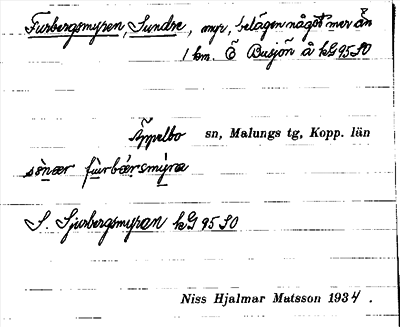 Furbergsmyren, Sundre, myr, belägen något mer än
1 km. Ö Busjön å kG 95 SO
Äppelbo sn, Malungs tg, Kopp. län
sönær furbærsmýra
S. Sjurbergsmyran kG 95 SO
Niss Hjalmar Matsson 1934.